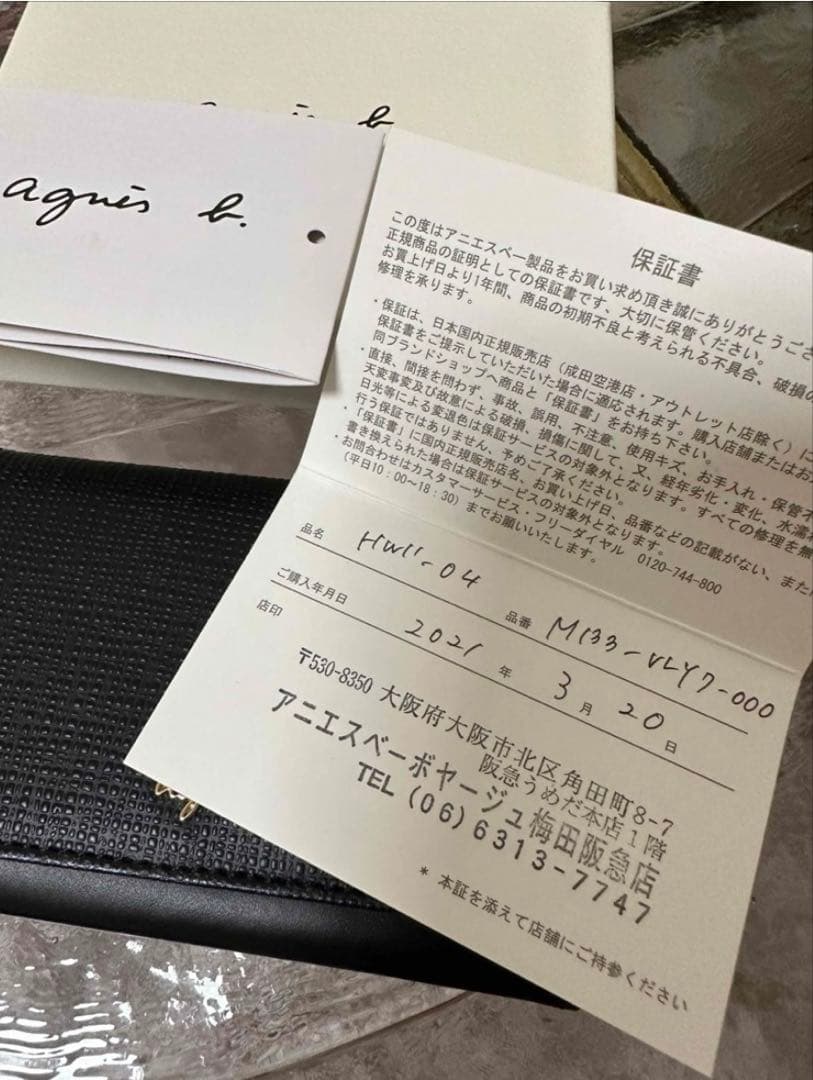 agnès b.
保証書
この度はアニエスベー製品をお買い求め頂き誠にありがとうござ
正規商品の証明としての保証書です、大切に保管ください。
お買上げ日より1年間、商品の初期不良と考えられる不具合、破損の
修理を承ります。
・保証は、日本国内正規販売店（成田空港店・アウトレット店除く）に
保証書をご提示していただいた場合に適応されます。購入店舗またはお
同ブランドショップへ商品と「保証書」をお持ち下さい。
・直接、間接を問わず、事故、誤用、不注意、使用キズ、お手入れ・保管不
天変事変及び故意による破損、損傷に関して、又、経年劣化・変化、水濡れ
日光等による変退色は保証サービスの対象外となります。すべての修理を無
行う保証ではありません、予めご了承ください。
・「保証書」に国内正規販売店名、お買い上げ日、品番などの記載がない、また
書き換えられた場合は保証サービスの対象外となります。
・お問合わせはカスタマーサービス・フリーダイヤル 0120-744-800
(平日10：00〜18：30) までお願いいたします。
品名 HW11-04 品番 M133-VLY7-000
ご購入年月日 2021 年 3 月 20 日
店印
〒530-8350 大阪府大阪市北区角田町8-7
阪急うめだ本店1階
アニエスベーボヤージュ梅田阪急店
TEL (06)6313-7747
* 本証を添えて店舗にご持参ください